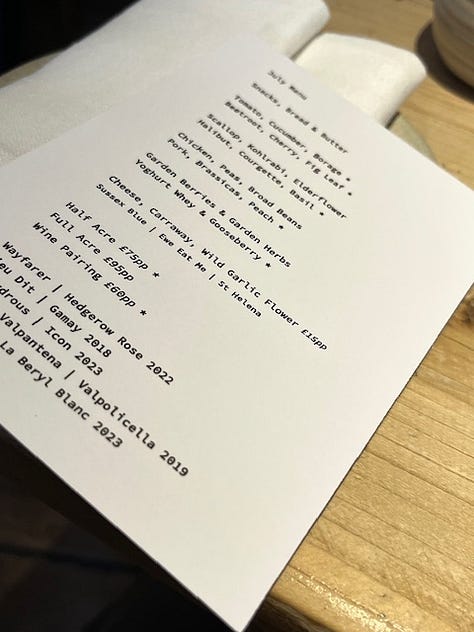 July Menu
Snacks, Bread & Butter
Tomato, Cucumber, Borage *
Beetroot, Cherry, Fig Leaf *
Scallop, Kohlrabi, Elderflower
Halibut, Courgette, Basil *
Chicken, Peas, Broad Beans
Pork, Brassicas, Peach *
Garden Berries & Garden Herbs
Yoghurt Whey & Gooseberry *
Cheese, Carraway, Wild Garlic Flower £15pp
Sussex Blue | Ewe Eat Me | St Helena
Half Acre £75pp *
Full Acre £95pp
Wine Pairing £60pp *
Wayfarer | Hedgerow Rose 2022
Dit | Gamay 2018
| Icon 2023
Valpantena | Valpolicella 2019
La Beryl Blanc 2023